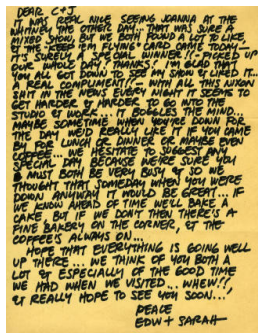 DEAR C+J
IT WAS REAL NICE SEEING JOANNA AT
WHITNEY THE OTHER DAY... THAT WAS SURE A
MIXED SHOW BUT WE BOTH FOUND A LOT TO LIKE,
& THE "KEEP 'EM FLYING" CARD CAME TODAY—
IT'S SURELY A SPECIAL WINNER. IT PICKED UP
OUR WHOLE DAY, THANKS! I'M GLAD THAT
YOU ALL GOT DOWN TO SEE MY SHOW & LIKED IT...
A REAL COMPLIMENT!— WITH ALL THIS NIXON
SHIT IN THE NEWS EVERY NIGHT IT SEEMS TO
GET HARDER & HARDER TO GO INTO THE
STUDIO & WORK... IT BOGGLES THE MIND...
MAYBE SOMETIME WHEN YOU'RE DOWN FOR
THE DAY WE'D REALLY LIKE IT IF YOU CAME
BY FOR LUNCH OR DINNER OR MAYBE EVEN
COFFEE... WE HESITATE TO SUGGEST ANY
SPECIAL DAY BECAUSE WE'RE SURE YOU
MUST BOTH BE VERY BUSY & SO WE
THOUGHT THAT SOMEDAY WHEN YOU WERE
DOWN ANYWAY IT WOULD BE GREAT... IF
WE KNOW AHEAD OF TIME WE'LL BAKE A
CAKE. BUT IF WE DON'T THEN THERE'S A
FINE BAKERY ON THE CORNER, & THE
COFFEE'S ALWAYS ON...
HOPE THAT EVERYTHING IS GOING WELL
UP THERE... WE THINK OF YOU BOTH A
LOT & ESPECIALLY OF THE GOOD TIME
WE HAD WHEN WE VISITED... WHEW!!,
& REALLY HOPE TO SEE YOU SOON...
PEACE
EDW + SARAH